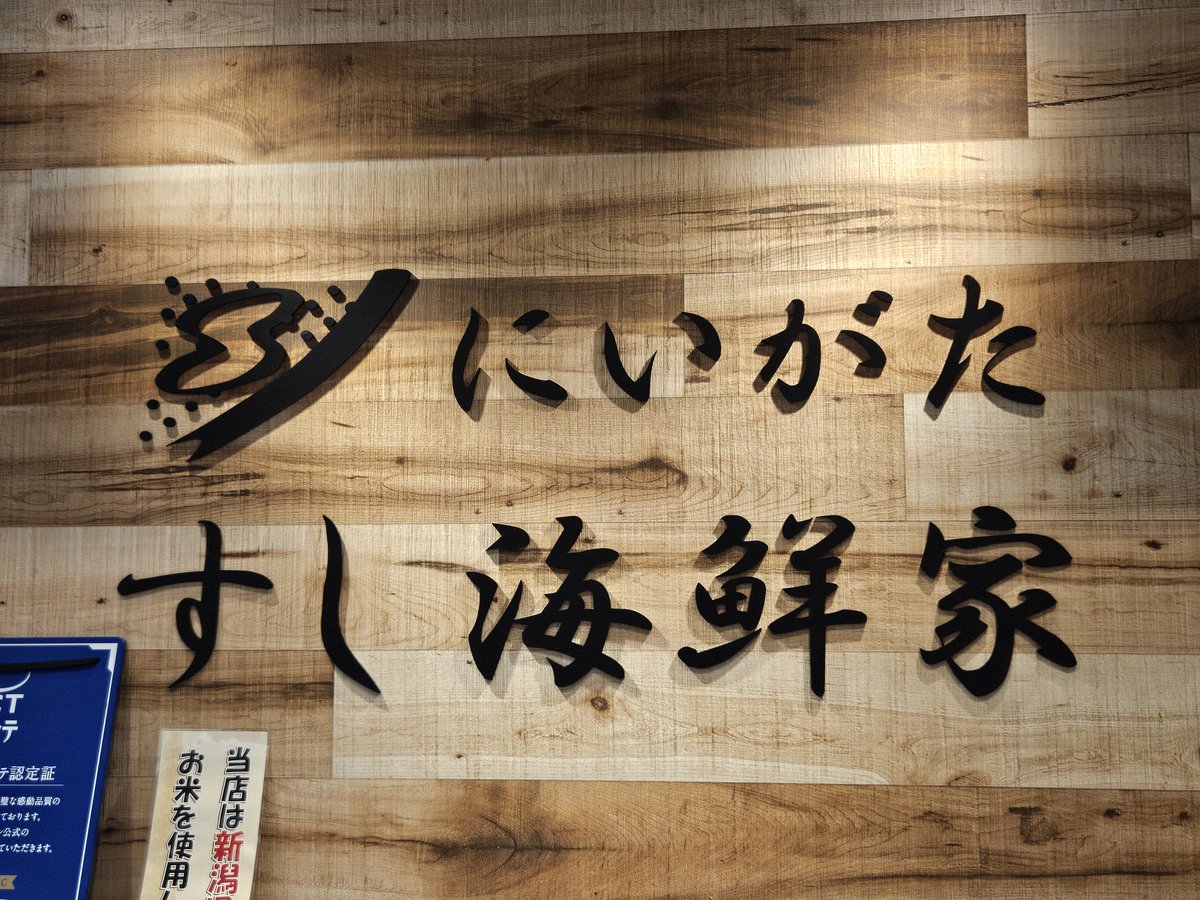 にいがた
すし海鮮家
CT
テ
テ認定証
璧な感動品質の
ております。
ン公式の
ていただきます。
当店は新潟
お米を使用し